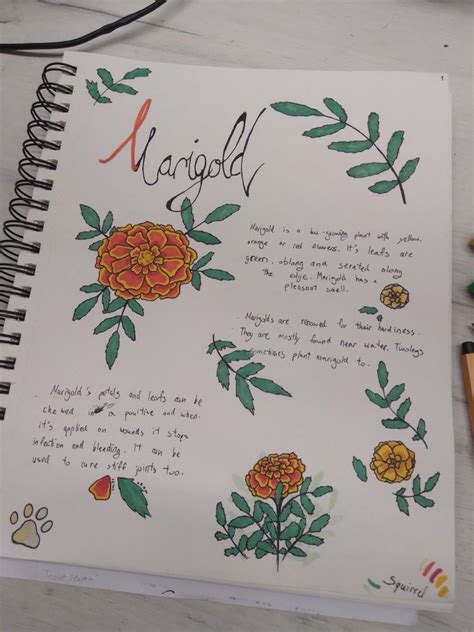 1
Marigold
Marigold is a low-growing plant with yellow,
orange or red flowers. It's leafs are
green, oblong and serated along
the edge. Marigold has a
pleasant smell.
Marigolds are renowed for their hardiness.
They are mostly found near water. Twolegs
sometimes plant marigold to.
Marigold's petals and leafs can be
chewed into a positive and when
it's applied on wounds it stops
infection and bleeding. It can be
used to cure stiff joints two.
Squirrel